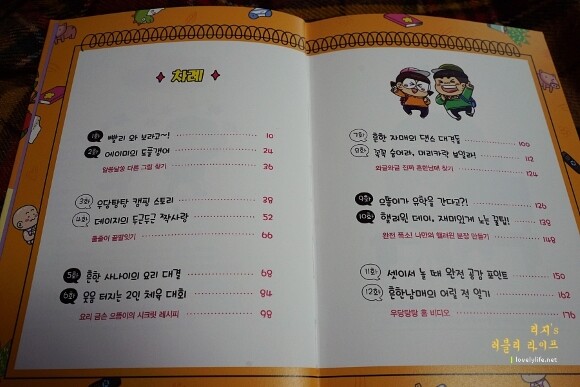 차례
1화 빨리 와 보라고~! 10
2화 에이미의 도플갱어 24
알쏭달쏭 다른 그림 찾기 36
3화 우당탕탕 캠핑 스토리 38
4화 데이지의 두근두근 짝사랑 52
줄줄이 끝말잇기 66
5화 흔한 사나이의 요리 대결 68
6화 웃음 터지는 2인 체육 대회 84
요리 금손 으뜸이의 시크릿 레시피 98
7화 흔한 자매의 댄스 대격돌 100
8화 꼭꼭 숨어라, 머리카락 보일라! 112
와글와글 진짜 흔한남매 찾기 124
9화 으뜸이가 유학을 간다고?! 126
10화 핼러윈 데이, 재미있게 노는 꿀팁! 138
완전 폭소! 나만의 핼러윈 분장 만들기 148
11화 셋이서 놀 때 완전 공감 포인트 150
12화 흔한남매의 어릴 적 일기 162
우당탕탕 홈 비디오 176
리지's
러블리 라이프
lovelylife.net